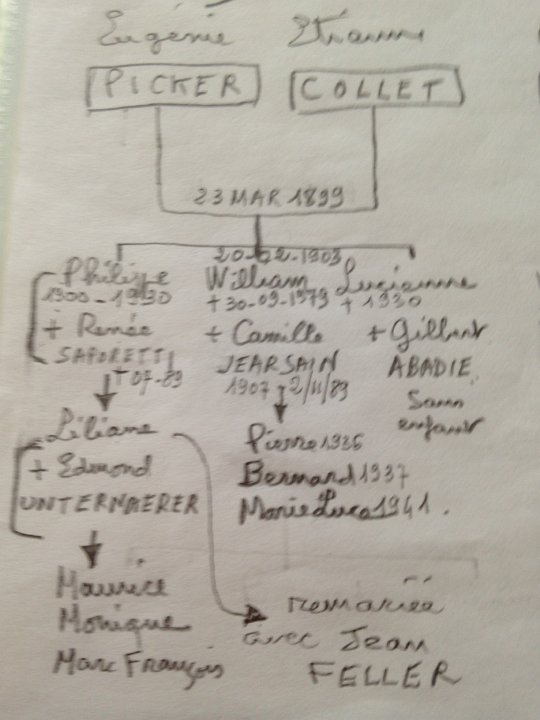 Eugénie
PICKER COLLET
23 MAR 1899
20-02-1903
Philippe William Lucienne
1900-1930 +30-09-1979 +1930
+ Renée + Camille + Gilbert
SAPORETTI JEARSAIN ABADIE
+ 07-89 1907 + 2/11/89 Sans
enfant
Liliane Pierre 1936
+ Edmond Bernard 1937
UNTERNAERER Marie Luce 1941.
Maurice
Monique remariée
Marc François avec Jean
FELLER